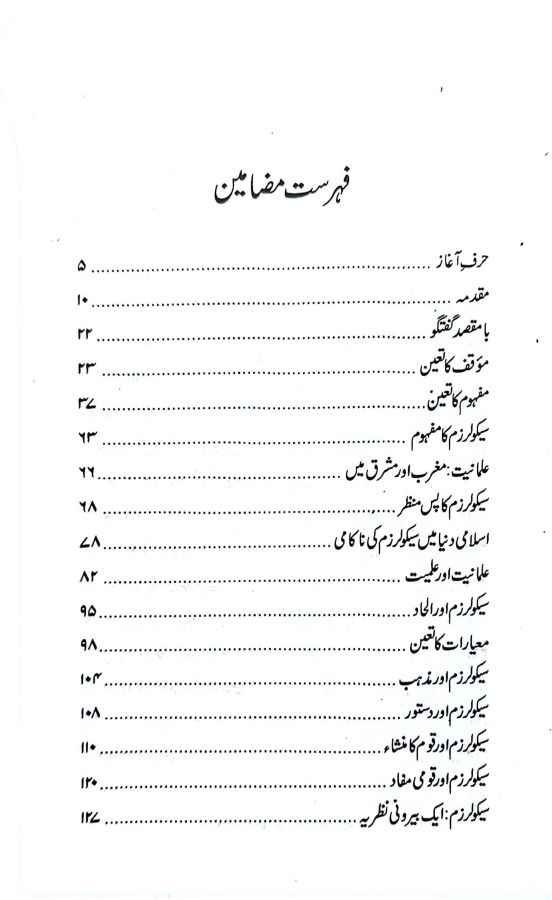 فہرست مضامین
حرفِ آغاز ........ ۵
مقدمہ ........ ۱۰
بامقصد گفتگو ........ ۲۲
مؤقف کا تعین ........ ۲۳
مفہوم کا تعین ........ ۳۷
سیکولرزم کا مفہوم ........ ۶۳
علمانیت: مغرب اور مشرق میں ........ ۶۶
سیکولرزم کا پس منظر ........ ۶۸
اسلامی دنیا میں سیکولرزم کی ناکامی ........ ۷۸
علمانیت اور علمیت ........ ۸۲
سیکولرزم اور الحاد ........ ۹۵
معیارات کا تعین ........ ۹۸
سیکولرزم اور مذہب ........ ۱۰۴
سیکولرزم اور دستور ........ ۱۰۸
سیکولرزم اور قوم کا منشاء ........ ۱۱۰
سیکولرزم اور قومی مفاد ........ ۱۲۰
سیکولرزم: ایک بیرونی نظریہ ........ ۱۲۷